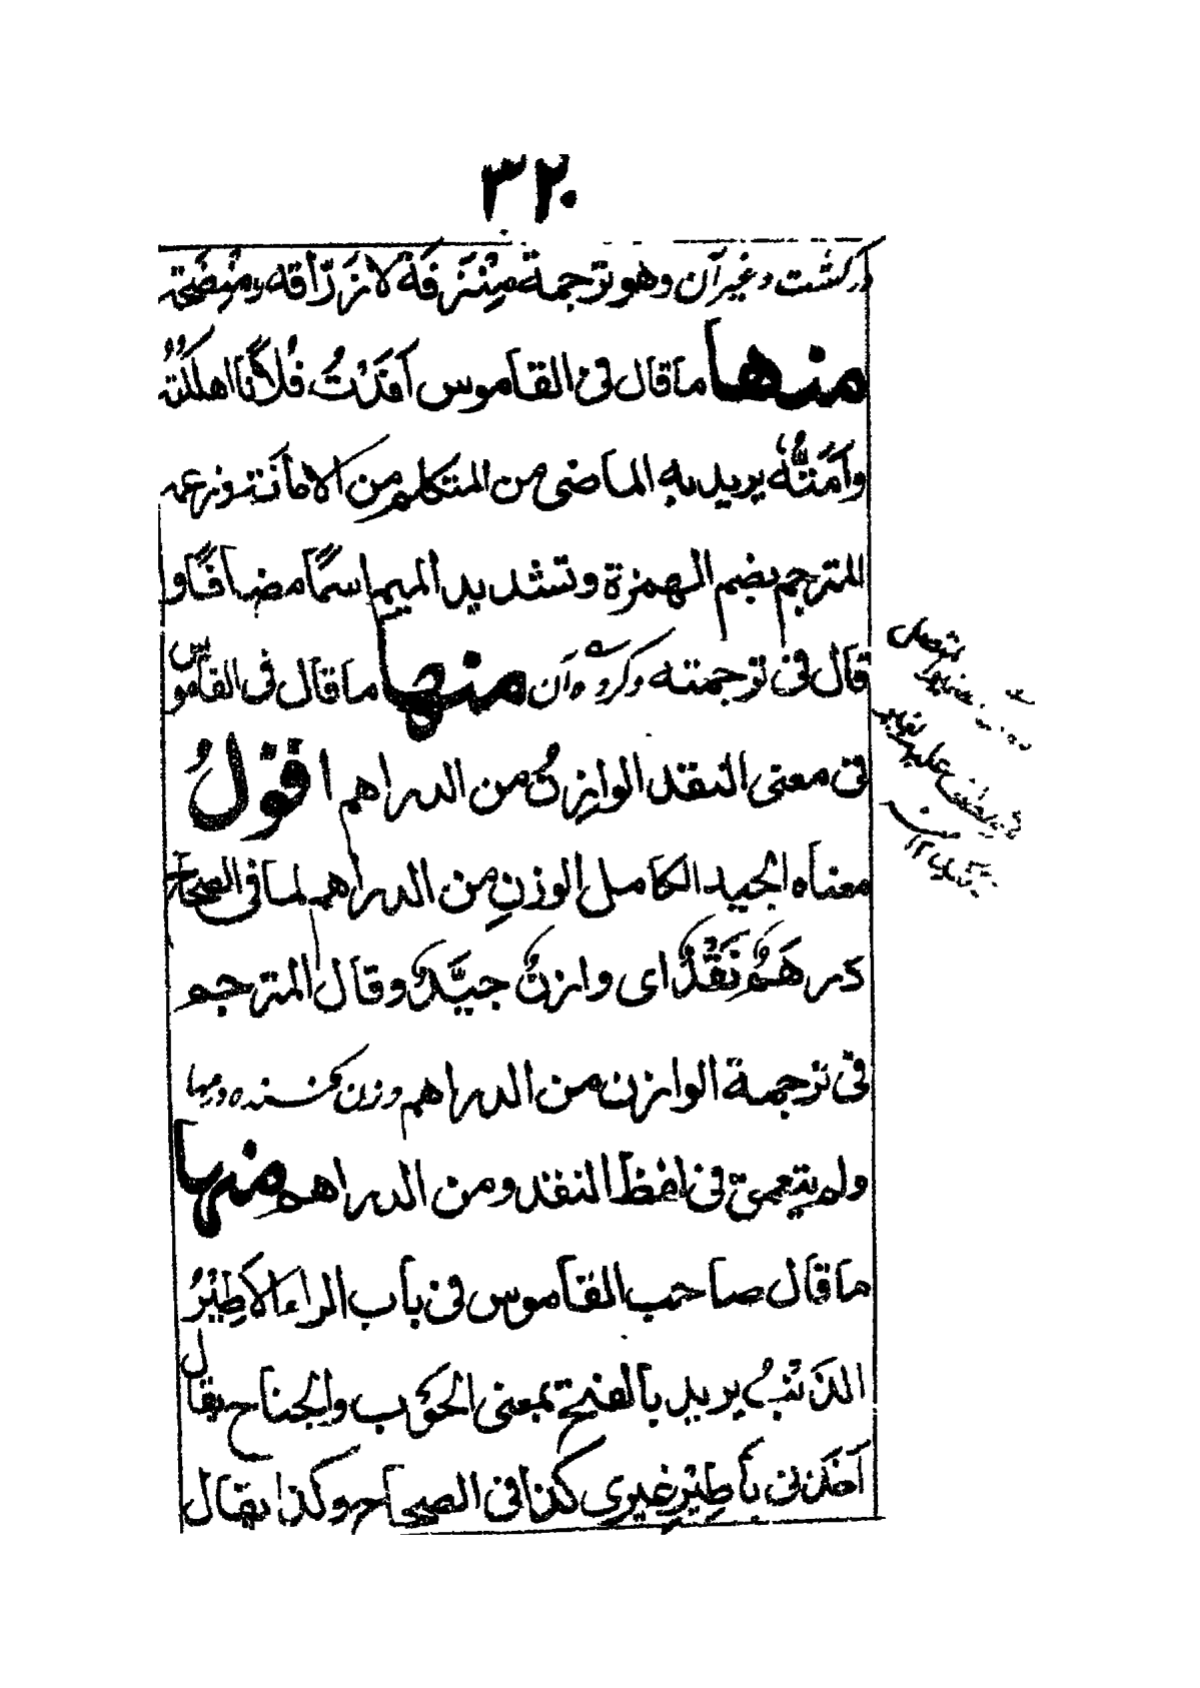 ٣٢
در كشت وغير آن وهو ترجمة مِنْزَفَة لا نزَّاقه ومِنْضَحة
منها ما قال فى القاموس اَفَدْتُ فُلَانًا اهلكتُهُ
وَاَمَتُّهُ يريد به الماضى من المتكلم من الاماتة وزعمه
المترجم بضم الهمزة وتشديد الميم اسمًا مضافًا و
قال فى ترجمته وكروه آن منها ما قال فى القاموس
فى معنى النقد الوازنُ من الدراهم اقولُ
معناه الجيد الكامل الوزنِ من الدراهم لما فى الصحاح
درهَمٌ نَقْدٌ اى وازنٌ جيّدٌ وقال المترجم
فى ترجمة الوازن من الدراهم وزن كننده درمها
ولم يتعمق فى لفظ النقد ومن الدراهم منها
ما قال صاحب القاموس فى باب الراء الاَطِيْرُ
الذَنْبُ يريد بالفتح بمعنى الحُوْب والجناح يقال
اَخذنى بأطِيْرِ غيرى كذا فى الصحاح وكذا يقال